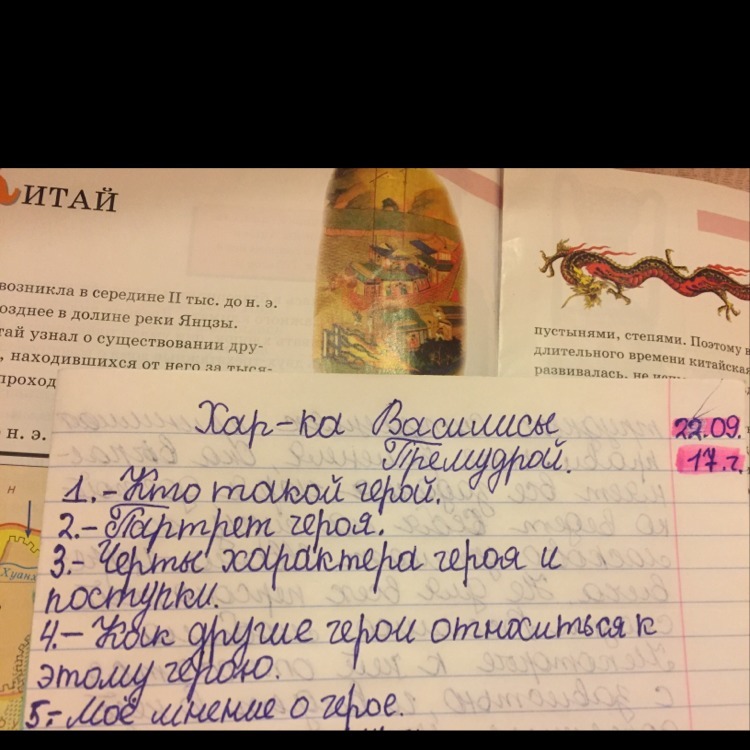 ИТАЙ
возникла в середине II тыс. до н. э.
озднее в долине реки Янцзы.
тай узнал о существовании дру-
, находившихся от него за тыся-
проход
н. э.
Н
Хуанх
пустынями, степями. Поэтому в
длительного времени китайская
развивалась, не
Хар-ка Василисы
Премудрой.
22.09.
17 г.
1.-Кто такой герой.
2.-Партрет героя.
3.-Черты характера героя и
поступки.
4.-Как другие герои относиться к
этому герою.
5.-Моё мнение о герое.